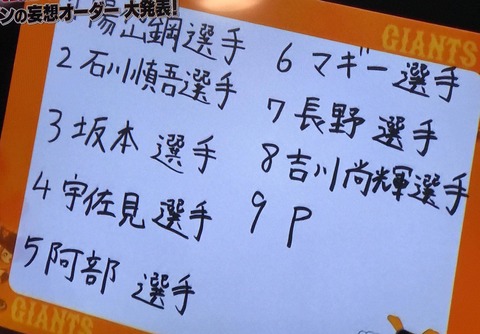 ンの妄想オーダー 大発表!
GIANTS
陽岱鋼選手
2 石川慎吾選手
3 坂本 選手
4 宇佐見 選手
5 阿部 選手
6 マギー 選手
7 長野 選手
8 吉川尚輝選手
9 P
GIANTS